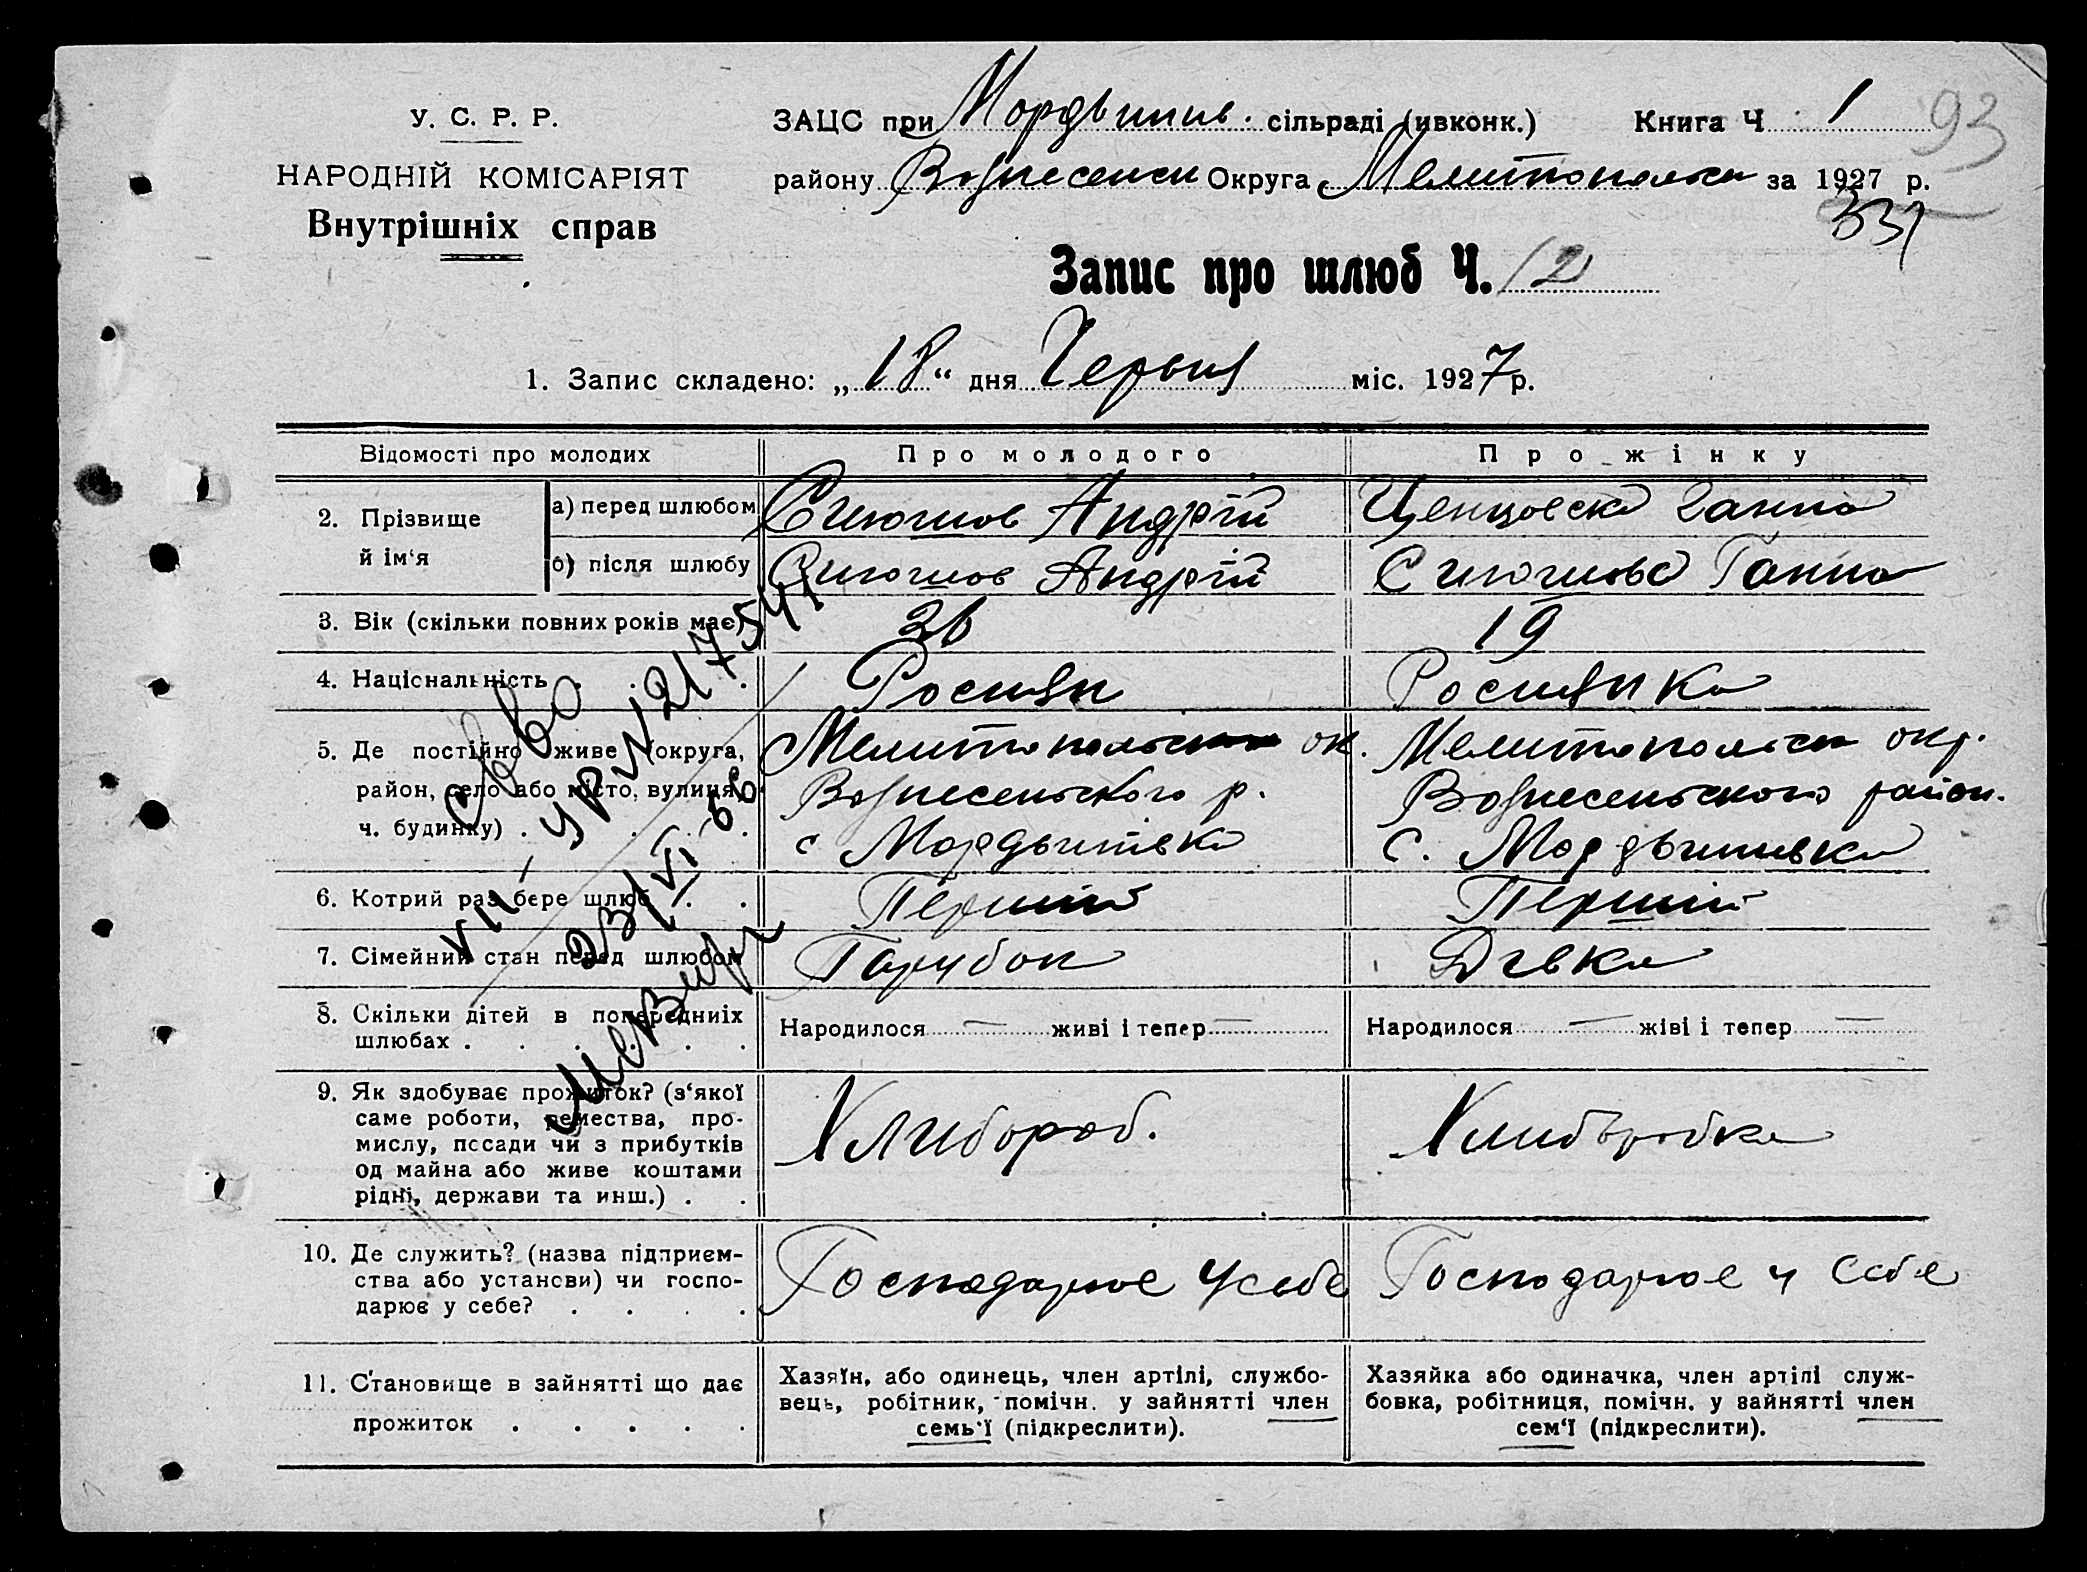 У. С. Р. Р.
НАРОДНІЙ КОМІСАРІЯТ
Внутрішніх справ
ЗАЦС при Мордвинив. сільраді (ивконк.) Книга Ч 1
93
району Вознесенськ Округа Мелитопольск за 1927 р.
331
Запис про шлюб Ч. 12
1. Запис складено: „18“ дня Червня міс. 1927 р.
Відомості про молодих Про молодого Про жінку
2. Прізвище й ім‘я
а) перед шлюбом Андрій Ганна
б) після шлюбу Андрій Ганна
3. Вік (скільки повних років має) 26 19
4. Націснальність . . . Росиян Росиянка
5. Де постійно живе (округа, район, село або місто, вулиця, ч. будинку) . . . .
Мелитопольск ок. Мелитопольск окр.
Вознесенського р. Вознесенського район.
с Мордвинівка с. Мордвинивка
6. Котрий раз бере шлюб . . Перший Перший
7. Сімейний стан перед шлюбом Парубок Дівка
8. Скільки дітей в попередниіх шлюбах . . . . . .
Народилося — живі і тепер — Народилося — жіві і тепер —
9. Як здобуває прожиток? (з‘якої
саме роботи, ремества, про-
мислу, псcади чи з прибутків
од майна або живе коштами
рідні, держави та инш.) . .
Хлибороб. Хлиборобка
10. Де служить? (назва підприєм-
ства або установи) чи госпо-
дарює у себе? . . . .
Господарює у себе Господарює у себе
11. Становище в зайнятті що дає
прожиток . . . . .
Хазяїн, або одинець, член артілі, службо-
вець, робітник, помічн. у зайнятті член
семь‘ї (підкреслити).
Хазяйка або одиначка, член артілі служ-
бовка, робітниця, помічн. у зайнятті член
сем‘ї (підкреслити).
св во
VII-УР N 217541
23/VI-66